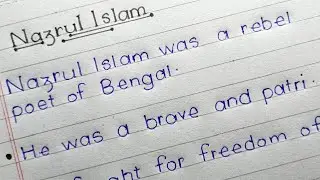 Nazrul Islam
Nazrul Islam was a rebel
poet of Bengal.
• He was a brave and patri
for freedom of